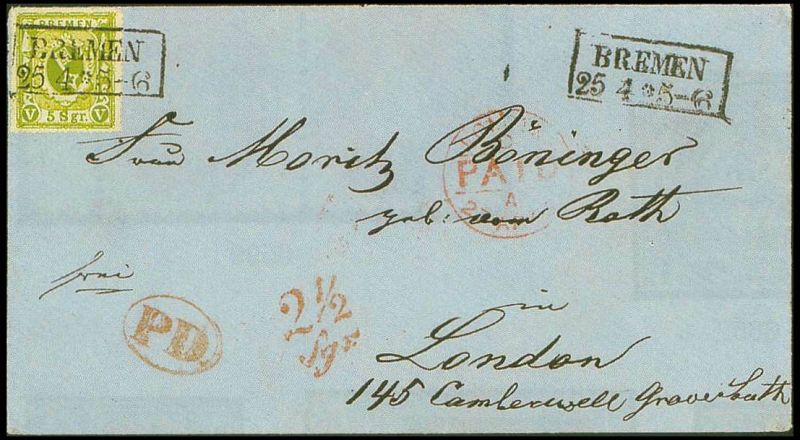 BREMEN
V 5 Sgr. V
BREMEN
25 4 * 5-6
BREMEN
25 4 * 5-6
Frau Moritz Böninger
PAID
A
geb: vom Rath
frei
PD.
2 1/2
Sgr
in
London
145 Camberwell Grove